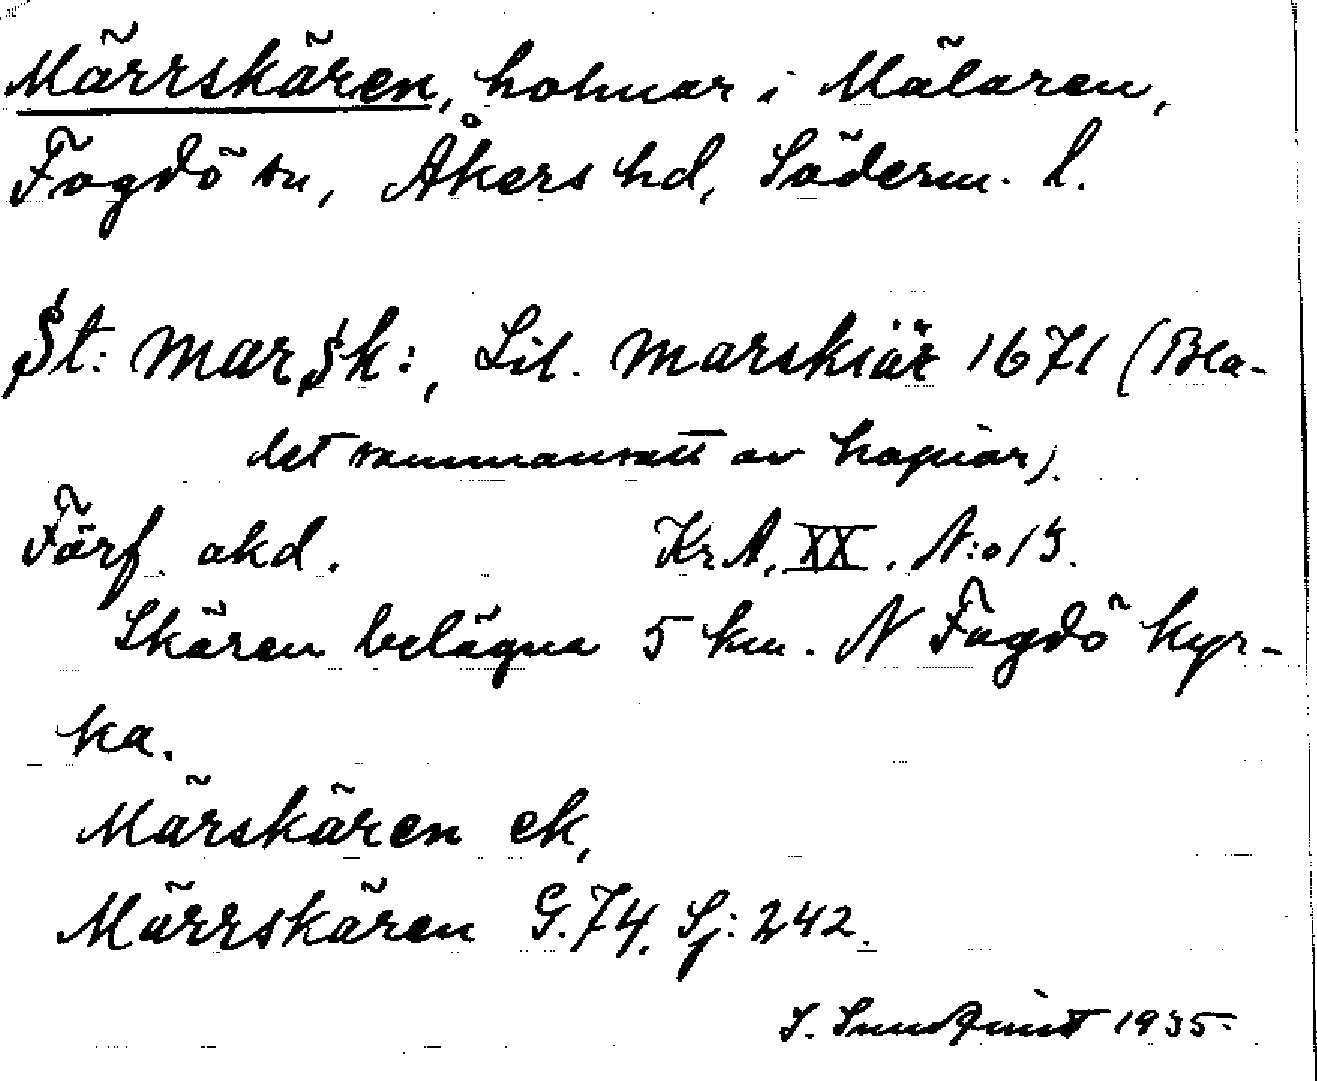 Märrskären, holmar i Mälaren,
Fogdö sn, Åkers hd, Söderm. l.
St: marsk:, Lil. marskiär 1671 (Bla-
det sammansatt av kopior).
Förf. okd. Kr.A. XX. N:o 13.
Skären belägna 5 km. N Fogdö kyr-
ka.
Märskären ek,
Märrskären G.74. Sj: 242.
S. Sundquist 1935.